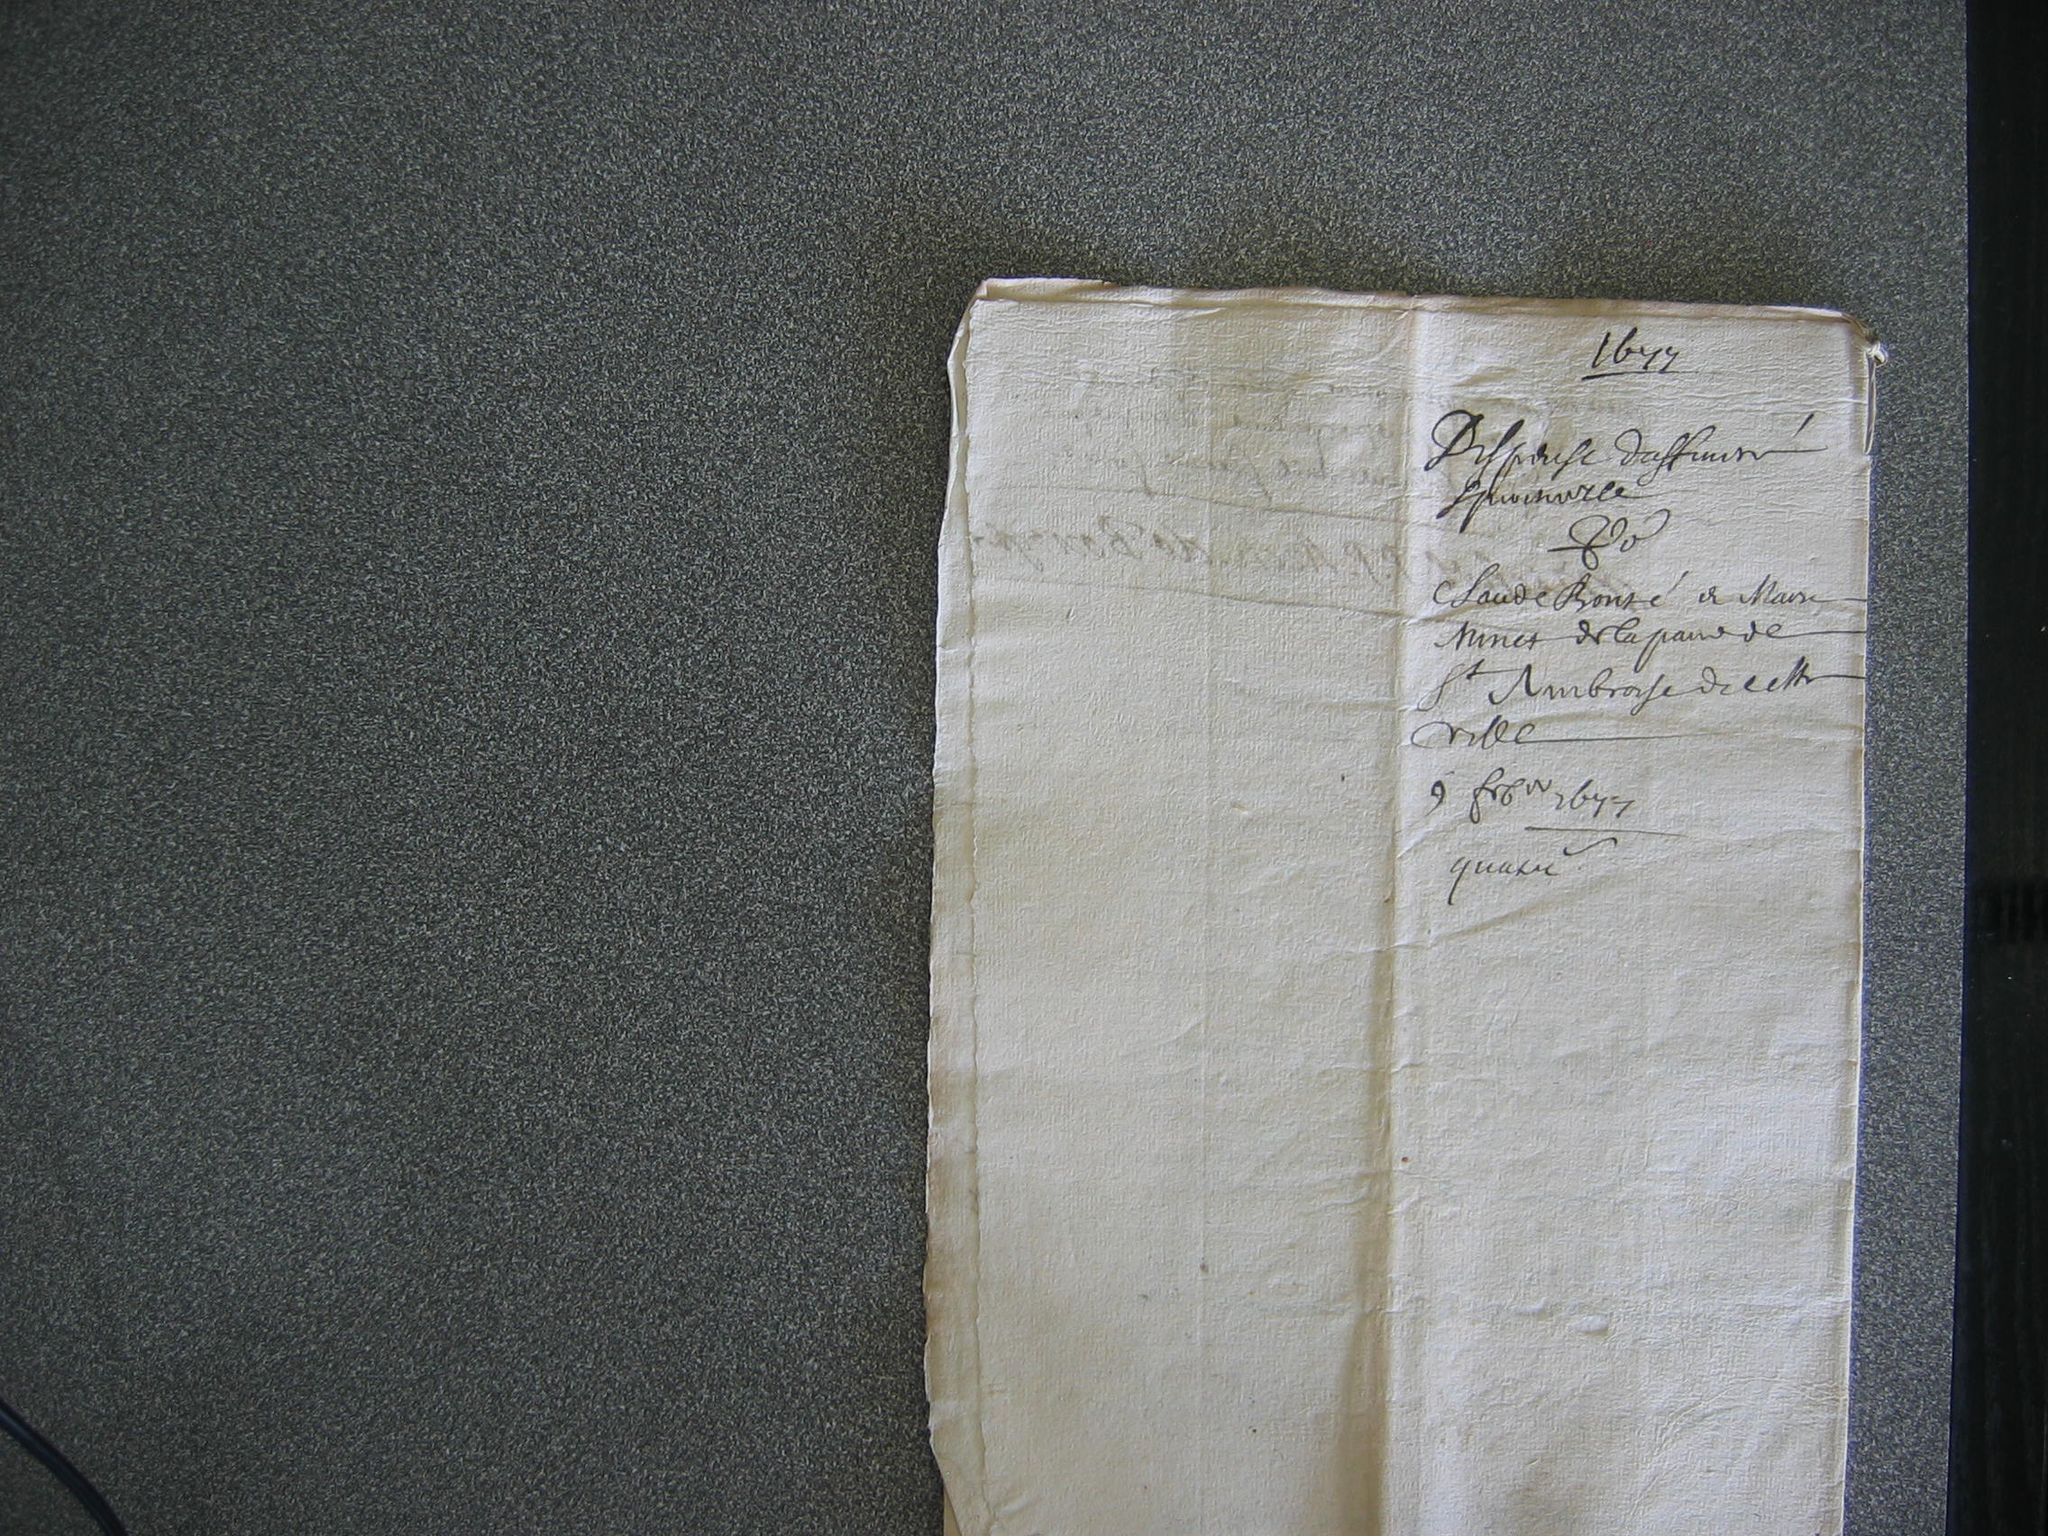 1677
Dispense daffinité
spirituelle
Po
Claude Bonté et Marie
Minet de la paroe de
St Ambroise de cette
ville
9 febvr 1677